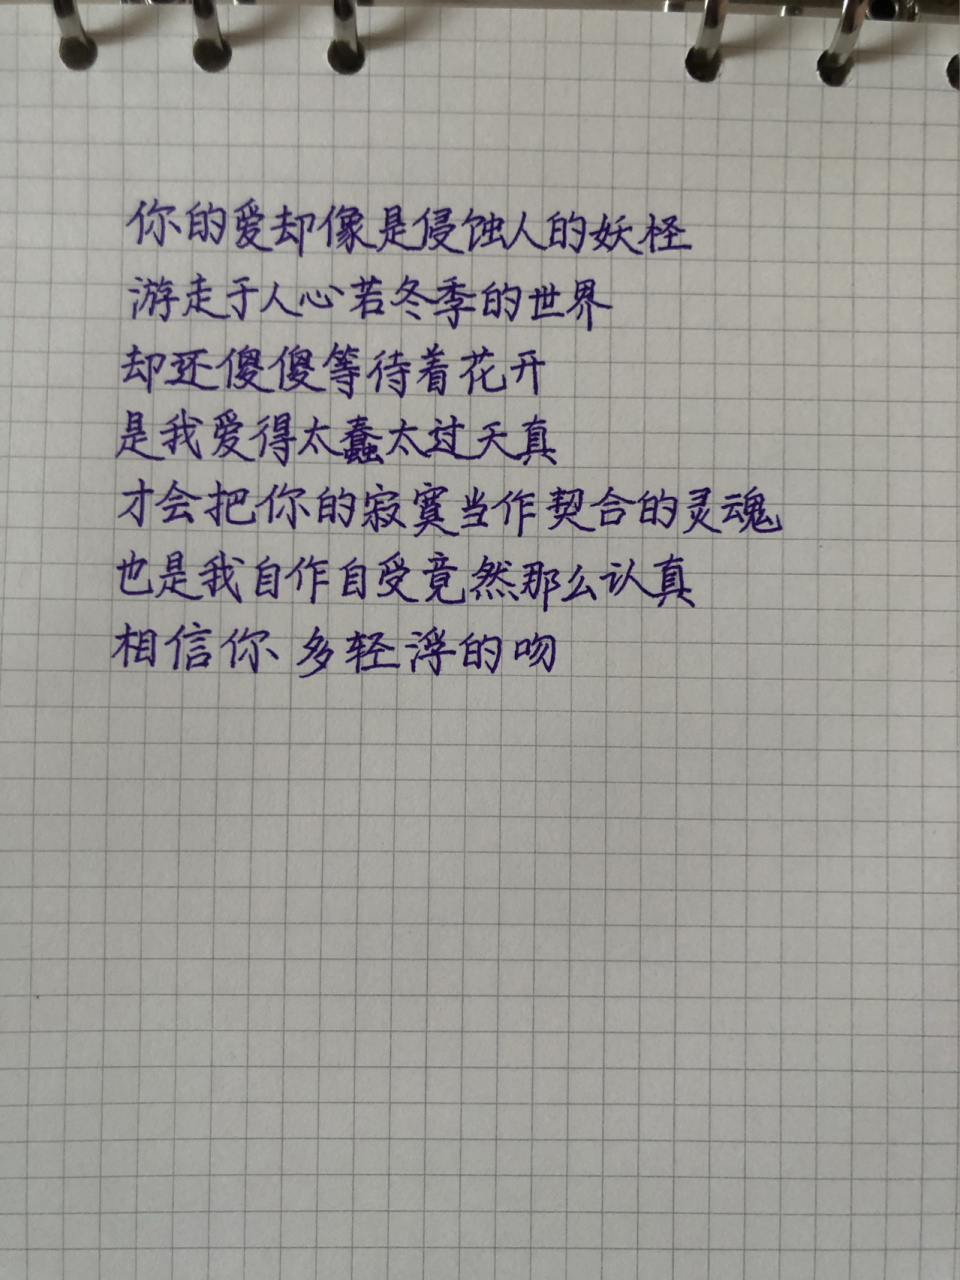 你的爱却像是侵蚀人的妖怪
游走于人心若冬季的世界
却还傻傻等待着花开
是我爱得太蠢太过天真
才会把你的寂寞当作契合的灵魂
也是我自作自受竟然那么认真
相信你 多轻浮的吻